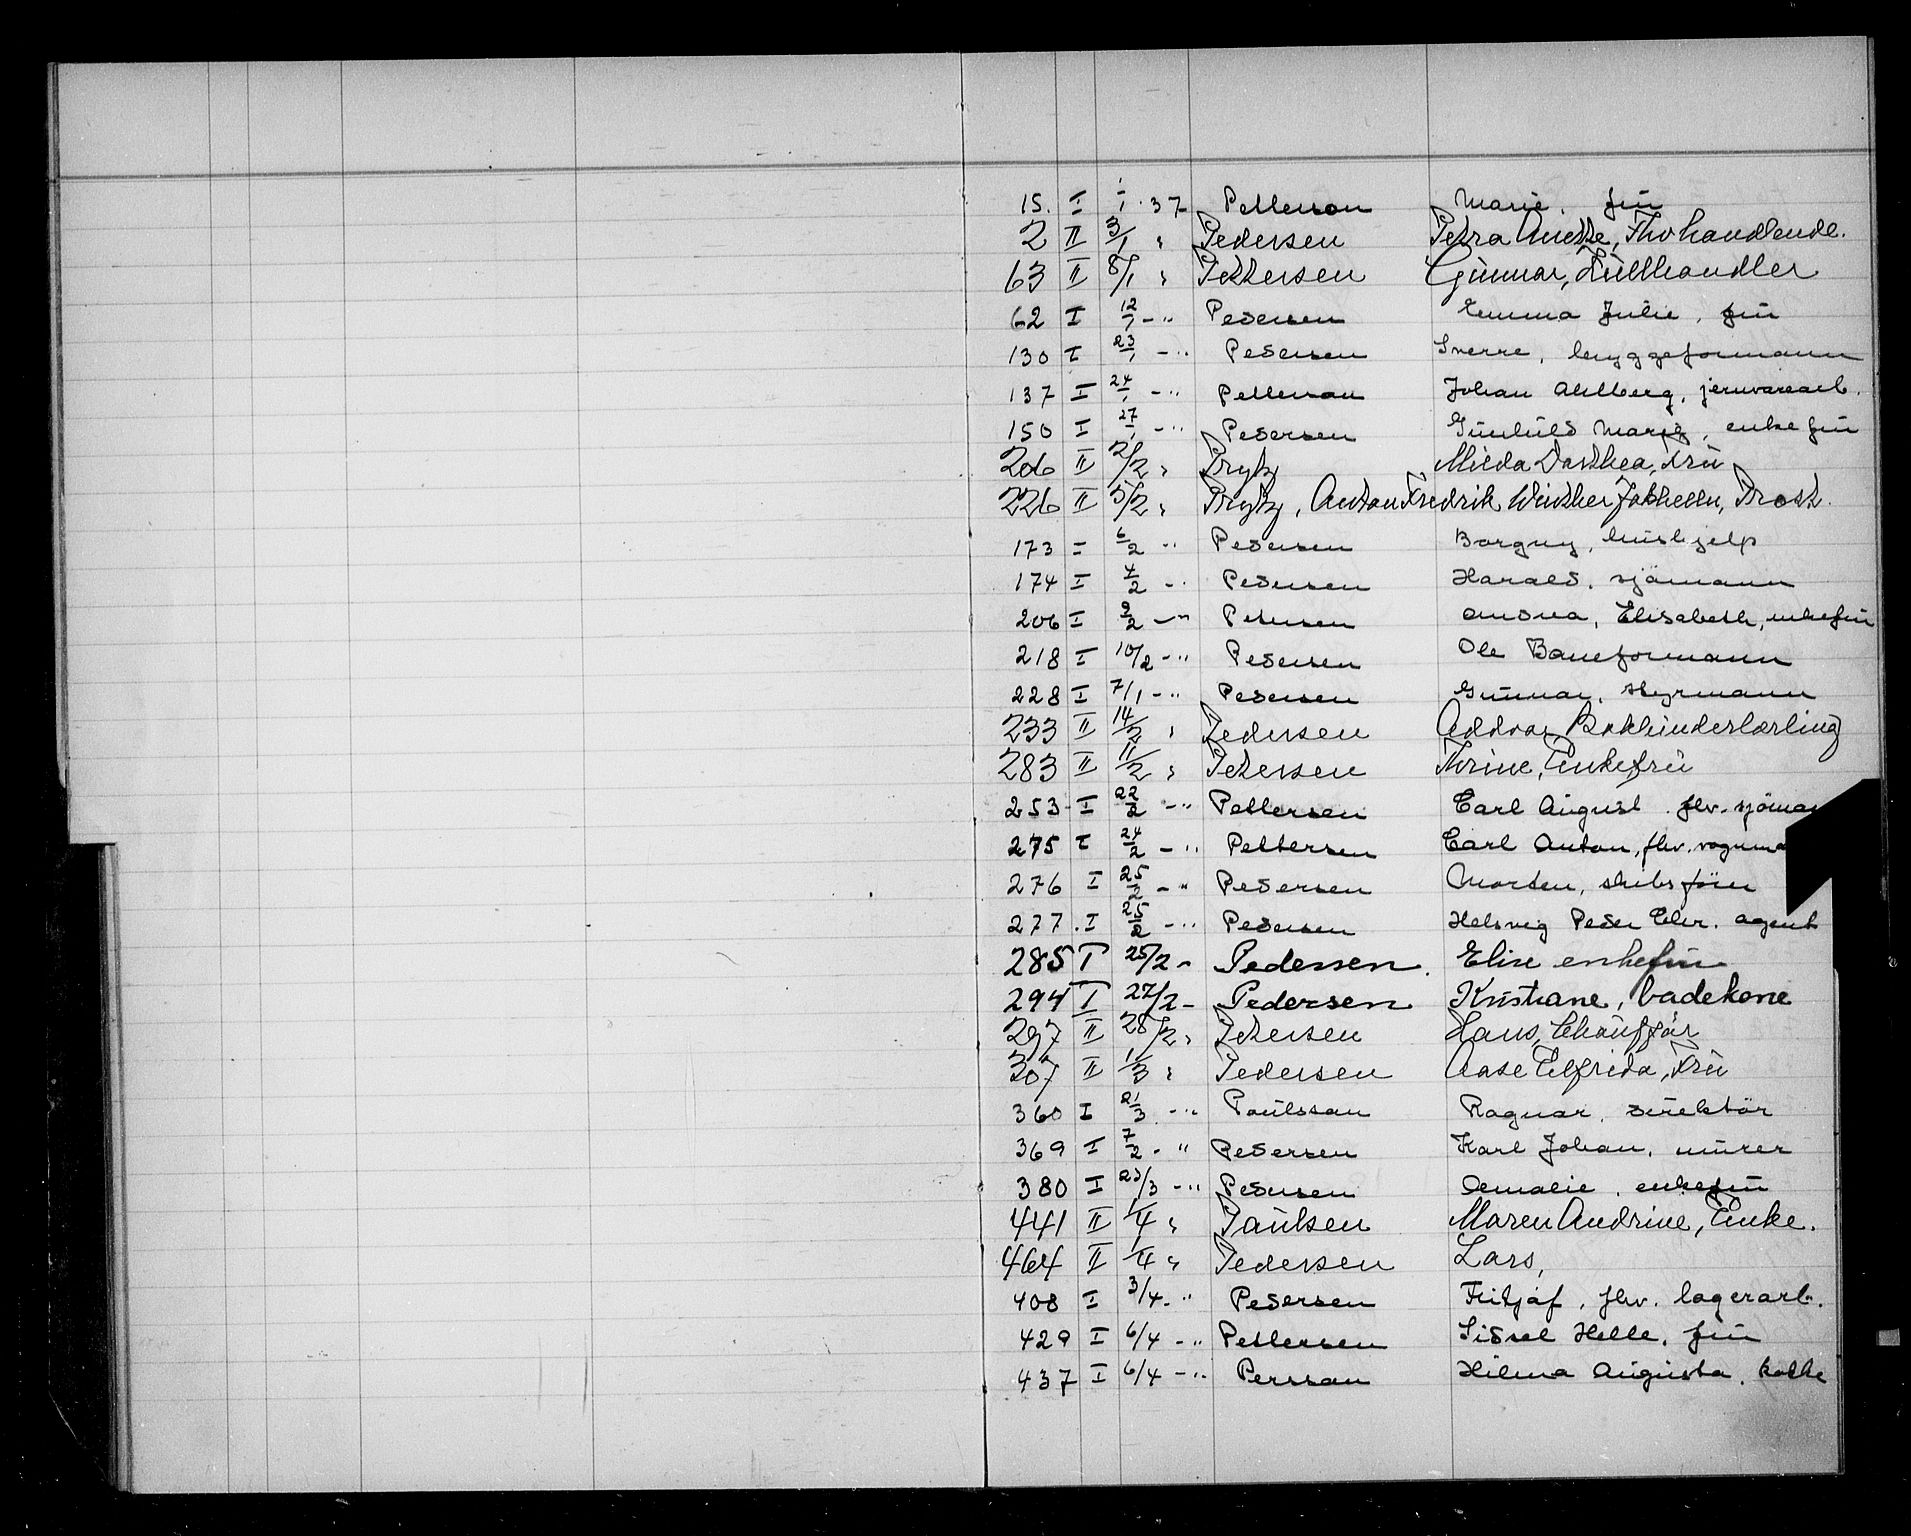 15. I 1/1 37 Petterson Marie, frü
2 II 3/1 " Pedersen Petra Anette, Fhv handlende.
63 II 8/1 " Pettersen Gunnar, Küllhandler
62 I 12/1 - " Pedersen Emma Julie, frü
130 I 23/1 - " Pedersen Sverre, bryggeformann
137 I 24/1 - " Petterson Johan Ahlberg, jernvarearb.
150 I 27/1 - " Pedersen Günhild Marie, enkefrü
206 II 2/2 " Prytz Milda Dorthea, Frü
226 II 5/2 " Prytz, Anton Fredrik Winther Jakhelln, Prost.
173 I 6/2 " Pedersen Borgny, hüshjelp
174 I 4/2 - " Pedersen Harald, sjömann
206 I 9/2 - " Petersen Andrea, Elisabeth, enkefrü
218 I 10/2 - " Pedersen Ole Baneformann
228 I 7/1 - " Pedersen Günnar, styrmann
233 II 14/2 " Pedersen Oddvar Bokbinderlærling
283 II 11/2 " Petersen Thrine, Enkefrü
253 I 22/2 - " Pettersen Carl Aügust fhv. sjöman
275 I 24/2 - " Pettersen Carl Anton, fhv. vognma
276 I 25/2 - " Pedersen Morten, skibsförer
277. I 25/2 - " Pedersen Helsvig Peder Chr. agent
285 I 25/2 - Pedersen. Elise enkefru
294 I 27/2 - Pedersen Kristiane, badekone
297 II 28/2 " Petersen Hans, Chaüffør
307 II 1/3 " Pedersen Aase Elfrida, Frü
360 I 21/3 - " Paülsson Ragnar, direktör
369 I 7/2 - " Pedersen Karl Johan, mürer
380 I 23/3 - " Pedersen Amalie, enkefrü
441 II 1/4 " Paülsen Maren Andrine, Enke.
464 II 1/4 " Pedersen Lars,
408 I 3/4 - " Pedersen Fritjof, fhv. lagerarb.
429 I 6/4 - " Pettersen Sidsel Helle, frü
437 I 6/4 - " Persson Hilma Aügusta, kokke